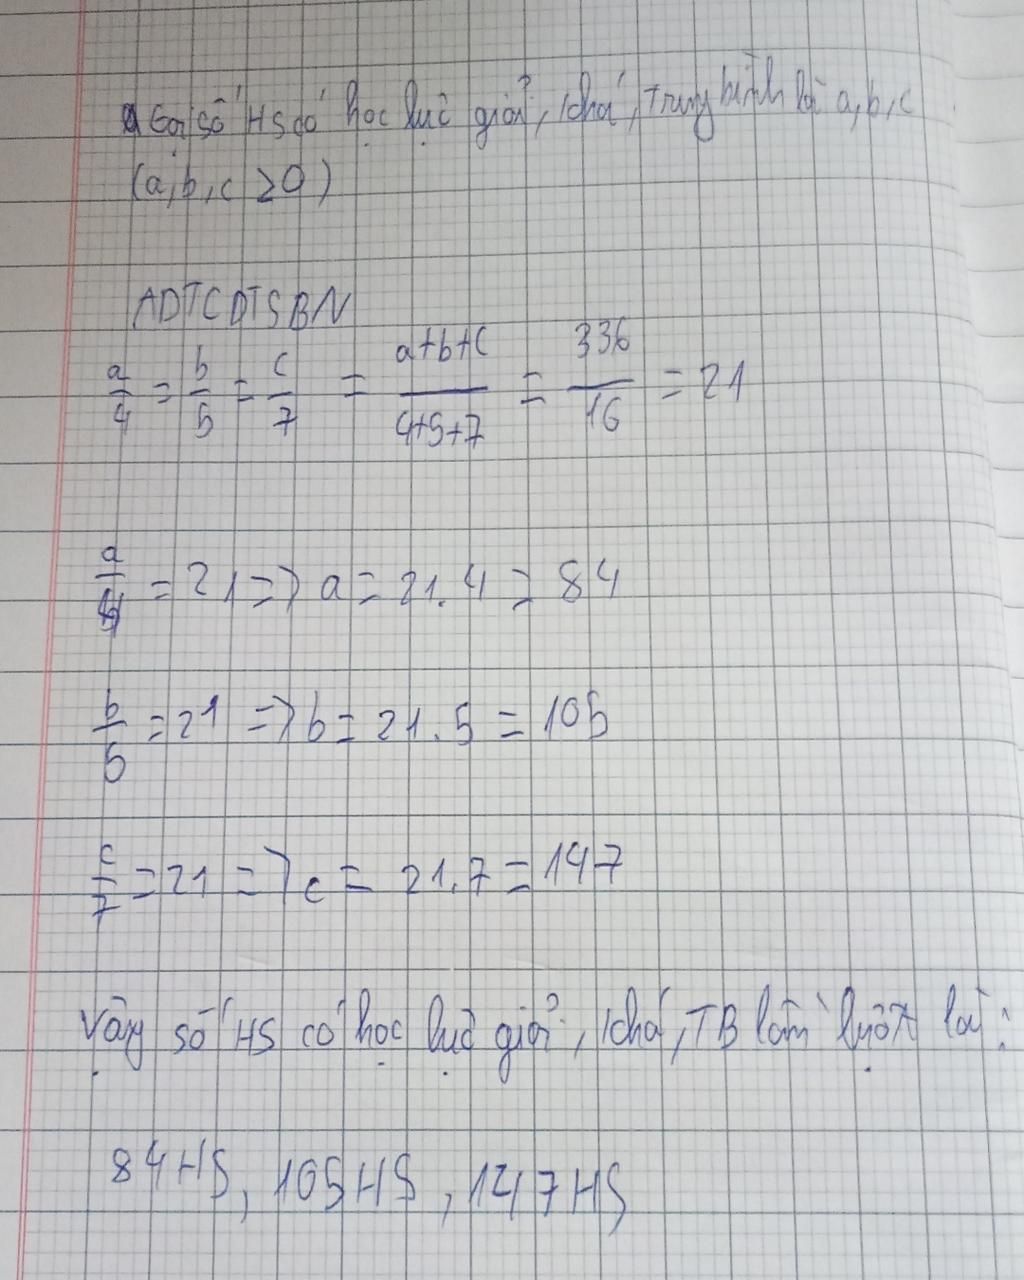 Gọi số HS có học lực giỏi, khá, Trung bình là a, b, c
(a, b, c ≥ 0)
ADTCDTSBN
a/4 = b/5 = c/7 = a+b+c/4+5+7 = 336/16 = 21
a/4 = 21 => a = 21.4 = 84
b/5 = 21 => b = 21.5 = 105
c/7 = 21 => c = 21.7 = 147
Vậy số HS có học lực giỏi, khá, TB lần lượt là:
84HS, 105HS, 147HS